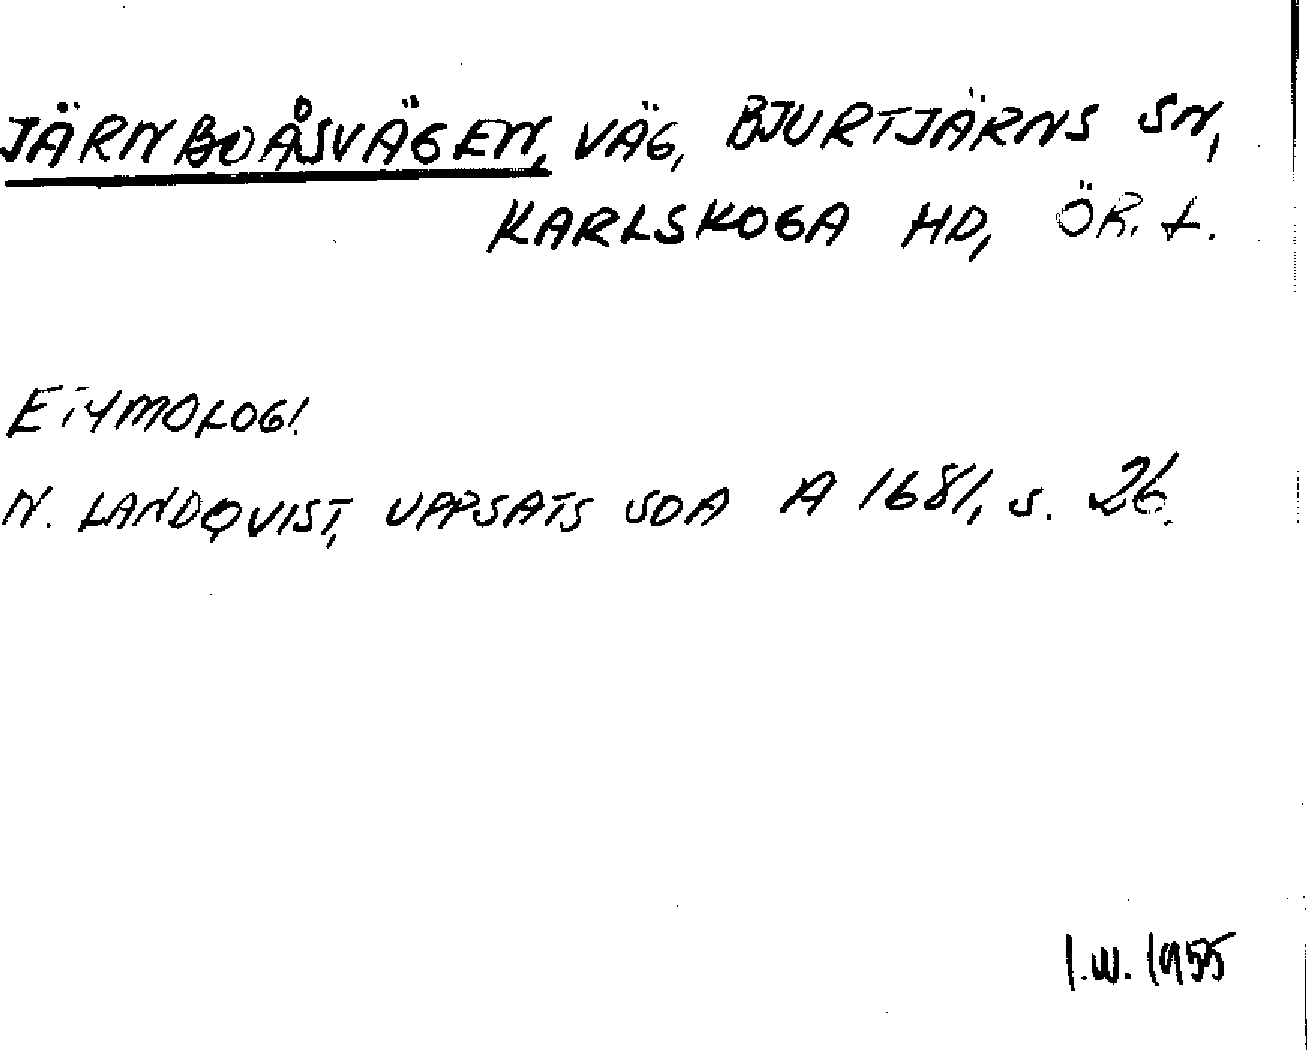 JÄRNBOÅSVÄGEN, VÄG, BJURTJÄRNS SN,
KARLSKOGA HD, ÖR. L.
ETYMOLOGI.
N. LANDQVIST, UPPSATS SOA A 1681, s. 26.
I.W. 1955